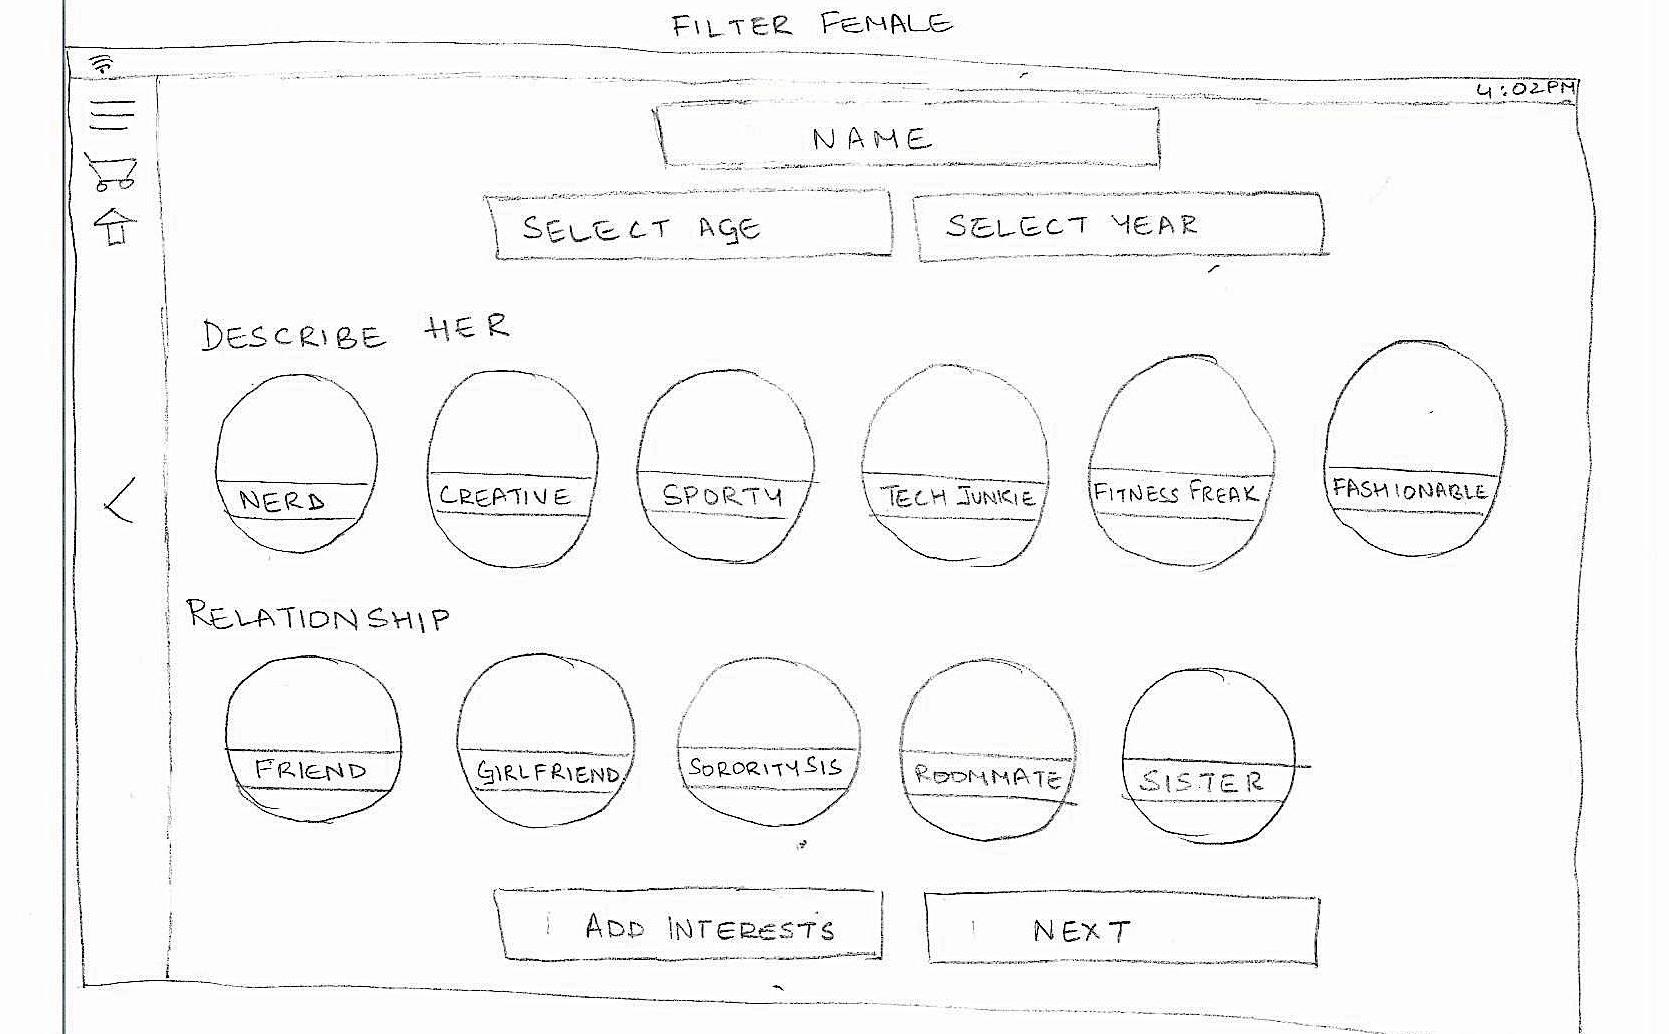 FILTER FEMALE
4:02PM
NAME
SELECT AGE
SELECT YEAR
DESCRIBE HER
NERD
CREATIVE
SPORTY
TECH JUNKIE
FITNESS FREAK
FASHIONABLE
RELATIONSHIP
FRIEND
GIRLFRIEND
SORORITY SIS
ROOMMATE
SISTER
ADD INTERESTS
NEXT